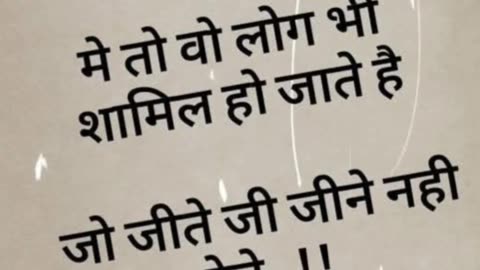 मे तो वो लोग भी
शामिल हो जाते है
जो जीते जी जीने नही
!!